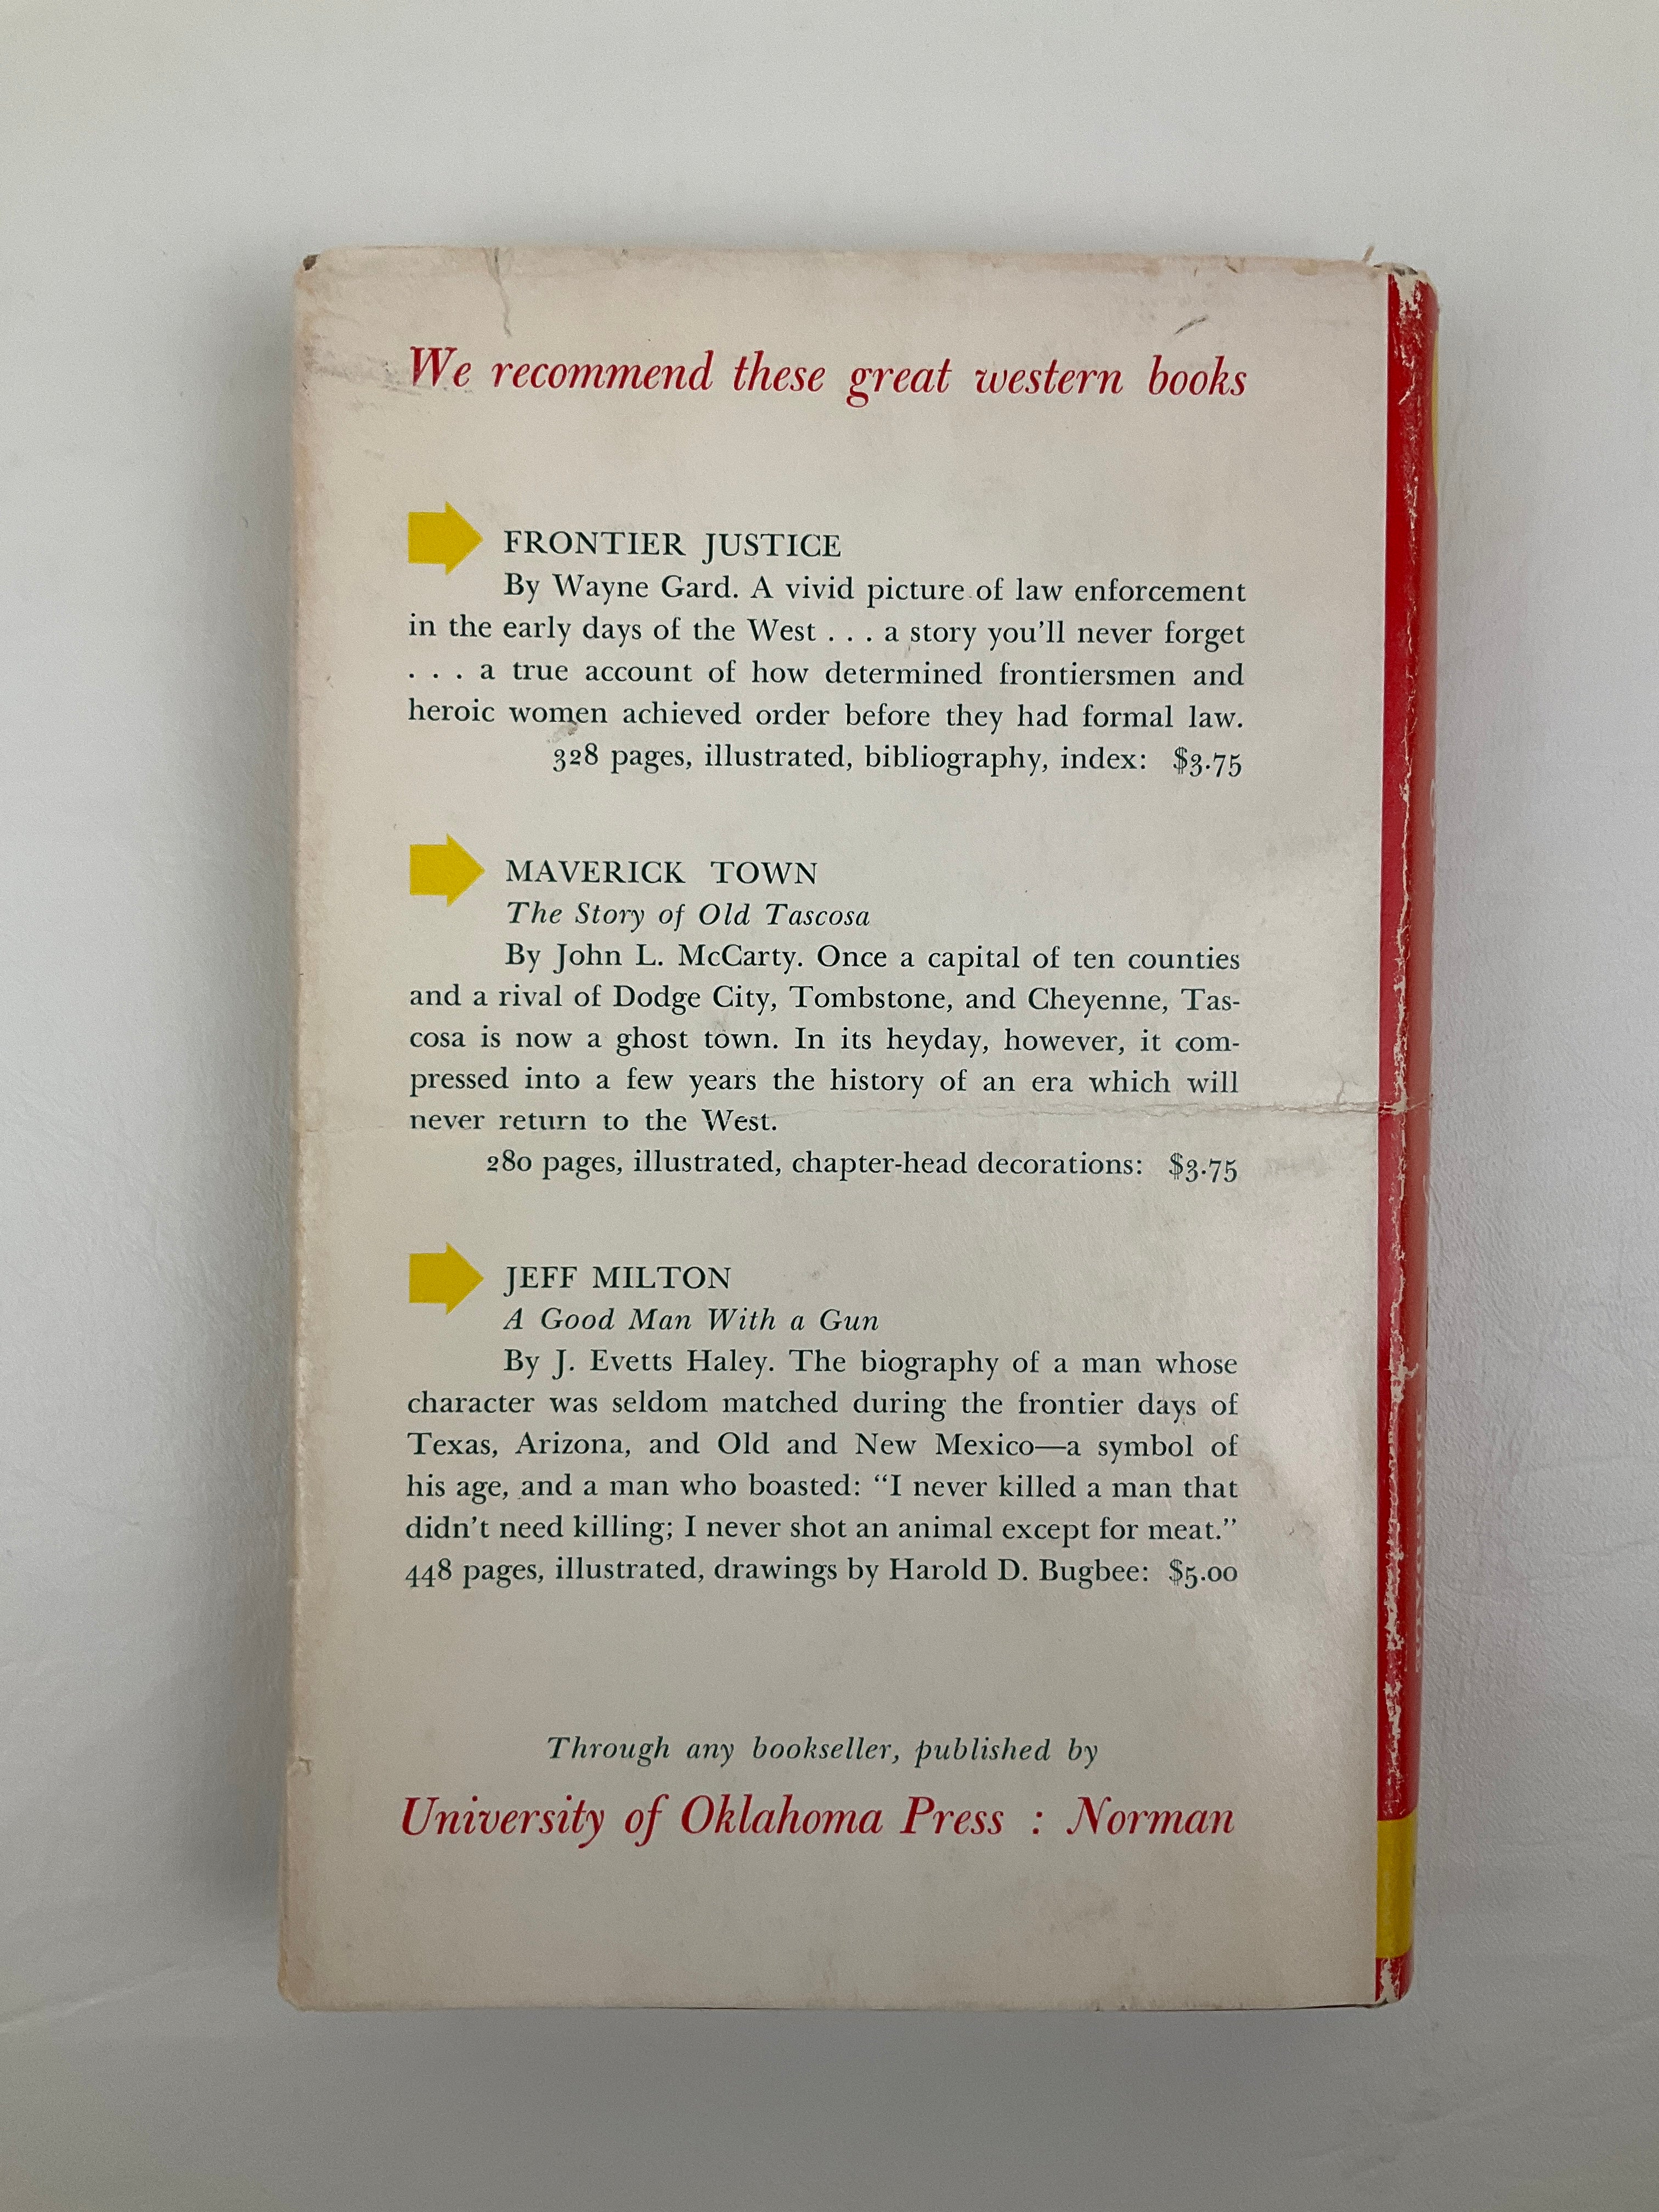 We recommend these great western books
FRONTIER JUSTICE
By Wayne Gard. A vivid picture of law enforcement
in the early days of the West . . . a story you'll never forget
. . . a true account of how determined frontiersmen and
heroic women achieved order before they had formal law.
328 pages, illustrated, bibliography, index: $3.75
MAVERICK TOWN
The Story of Old Tascosa
By John L. McCarty. Once a capital of ten counties
and a rival of Dodge City, Tombstone, and Cheyenne, Tas-
cosa is now a ghost town. In its heyday, however, it com-
pressed into a few years the history of an era which will
never return to the West.
280 pages, illustrated, chapter-head decorations: $3.75
JEFF MILTON
A Good Man With a Gun
By J. Evetts Haley. The biography of a man whose
character was seldom matched during the frontier days of
Texas, Arizona, and Old and New Mexico—a symbol of
his age, and a man who boasted: “I never killed a man that
didn't need killing; I never shot an animal except for meat.”
448 pages, illustrated, drawings by Harold D. Bugbee: $5.00
Through any bookseller, published by
University of Oklahoma Press : Norman